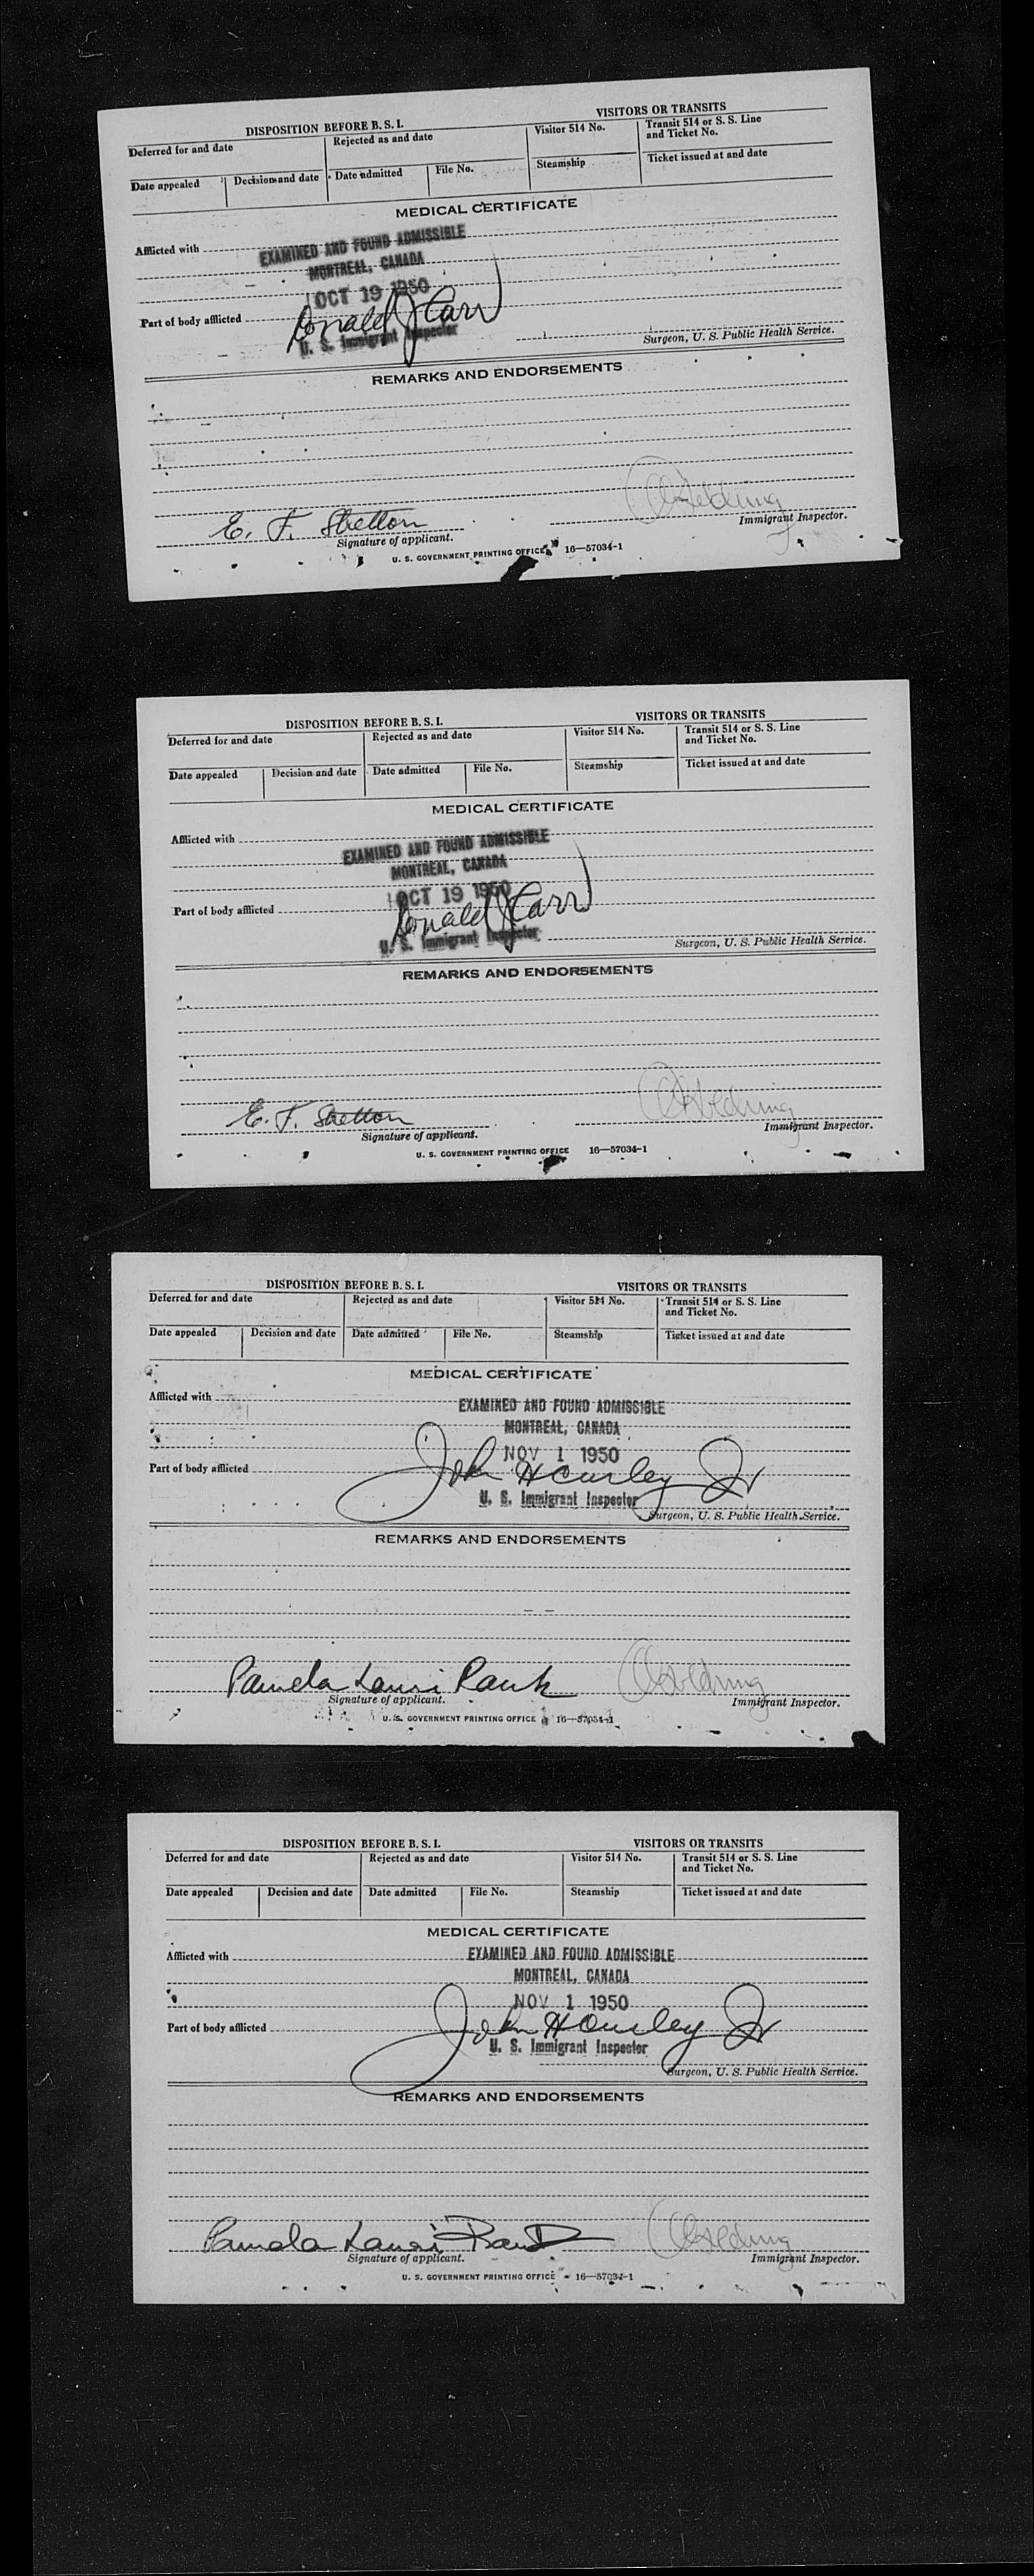 DISPOSITION BEFORE B. S. I. VISITORS OR TRANSITS
Deferred for and date Rejected as and date Visitor 514 No. Transit 514 or S. S. Line
and Ticket No.
Date appealed Decision and date Date admitted File No. Steamship Ticket issued at and date
MEDICAL CERTIFICATE
Afflicted with
EXAMINED AND FOUND ADMISSIBLE
MONTREAL, CANADA
OCT 19 1950
Part of body afflicted Donald J Carr
U. S. Immigrant Inspector
Surgeon, U. S. Public Health Service.
REMARKS AND ENDORSEMENTS
E. F.
Signature of applicant. Immigrant Inspector.
U. S. GOVERNMENT PRINTING OFFICE 16—57034-1
DISPOSITION BEFORE B. S. I. VISITORS OR TRANSITS
Deferred for and date Rejected as and date Visitor 514 No. Transit 514 or S. S. Line
and Ticket No.
Date appealed Decision and date Date admitted File No. Steamship Ticket issued at and date
MEDICAL CERTIFICATE
Afflicted with
EXAMINED AND FOUND ADMISSIBLE
MONTREAL, CANADA
OCT 19 1950
Part of body afflicted Donald J Carr
U. S. Immigrant Inspector
Surgeon, U. S. Public Health Service.
REMARKS AND ENDORSEMENTS
E. F.
Signature of applicant. Immigrant Inspector.
U. S. GOVERNMENT PRINTING OFFICE 16—57034-1
DISPOSITION BEFORE B. S. I. VISITORS OR TRANSITS
Deferred for and date Rejected as and date Visitor 514 No. Transit 514 or S. S. Line
and Ticket No.
Date appealed Decision and date Date admitted File No. Steamship Ticket issued at and date
MEDICAL CERTIFICATE
Afflicted with
EXAMINED AND FOUND ADMISSIBLE
MONTREAL, CANADA
NOV 1 1950
Part of body afflicted John H Jr
U. S. Immigrant Inspector
Surgeon, U. S. Public Health Service.
REMARKS AND ENDORSEMENTS
Pamela
Signature of applicant. Immigrant Inspector.
U. S. GOVERNMENT PRINTING OFFICE 16—57034-1
DISPOSITION BEFORE B. S. I. VISITORS OR TRANSITS
Deferred for and date Rejected as and date Visitor 514 No. Transit 514 or S. S. Line
and Ticket No.
Date appealed Decision and date Date admitted File No. Steamship Ticket issued at and date
MEDICAL CERTIFICATE
Afflicted with
EXAMINED AND FOUND ADMISSIBLE
MONTREAL, CANADA
NOV 1 1950
Part of body afflicted John H Jr
U. S. Immigrant Inspector
Surgeon, U. S. Public Health Service.
REMARKS AND ENDORSEMENTS
Pamela
Signature of applicant. Immigrant Inspector.
U. S. GOVERNMENT PRINTING OFFICE 16—57034-1